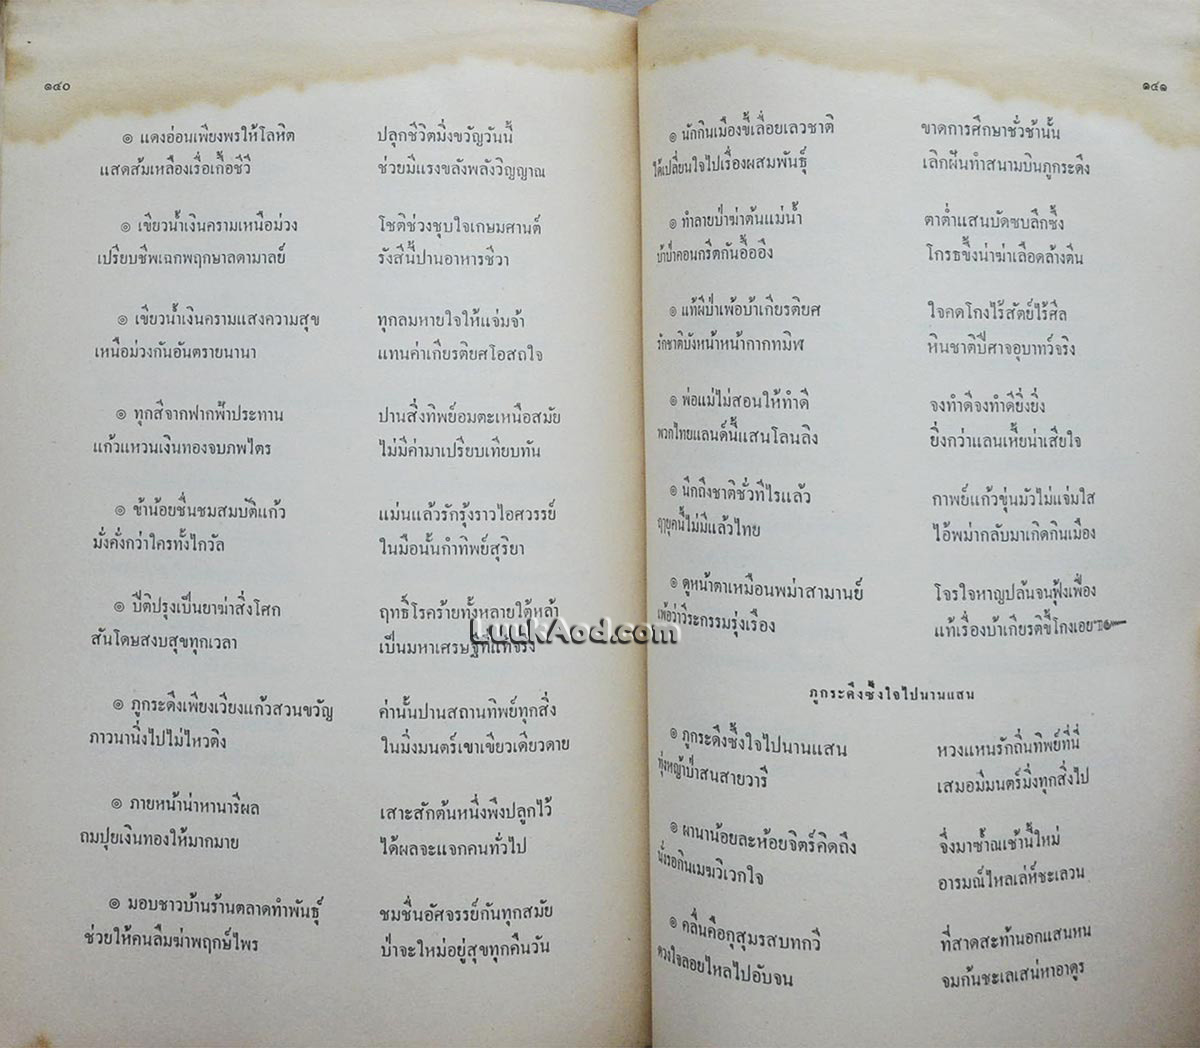 ๑๔๐
๏ แดงอ่อนเพียงพรให้โลหิต ปลุกชีวิตมิ่งขวัญวันนี้
แสดส้มเหลืองเรื่อเกื้อชีวี ช่วยมีแรงขลังพลังวิญญาณ
๏ เขียวน้ำเงินครามเหนือม่วง โชติช่วงชุบใจเกษมศานต์
เปรียบชีพเฉกพฤกษาลดามาลย์ รังสีนี้ปานอาหารชีวา
๏ เขียวน้ำเงินครามแสงความสุข ทุกลมหายใจให้แจ่มจ้า
เหนือม่วงกันอันตรายนานา แทนค่าเกียรติยศโอสถใจ
๏ ทุกสีจากฟากฟ้าประทาน ปานสิ่งทิพย์อมตะเหนือสมัย
แก้วแหวนเงินทองจบภพไตร ไม่มีค่ามาเปรียบเทียบทัน
๏ ข้าน้อยชื่นชมสมบัติแก้ว แม่นแล้วรักรุ้งราวไอศวรรย์
มั่งคั่งกว่าใครทั้งไกวัล ในมือนั้นกำทิพย์สุริยา
๏ ปีติปรุงเป็นยาฆ่าสิ่งโศก ฤทธิ์โรคร้ายทั้งหลายใต้หล้า
สันโดษสงบสุขทุกเวลา เป็นมหาเศรษฐีที่แท้จริง
๏ ภูกระดึงเพียงเวียงแก้วสวนขวัญ ค่านั้นปานสถานทิพย์ทุกสิ่ง
ภาวนานิ่งไปไม่ไหวติง ในมิ่งมนตร์เขาเขียวเดียวดาย
๏ ภายหน้าน่าหานารีผล เสาะสักต้นหนึ่งพึงปลูกไว้
ถมปุยเงินทองให้มากมาย ได้ผลจะแจกคนทั่วไป
๏ มอบชาวบ้านร้านตลาดทำพันธุ์ ชมชื่นอัศจรรย์กันทุกสมัย
ช่วยให้คนลืมฆ่าพฤกษ์ไพร ป่าจะใหม่อยู่สุขทุกคืนวัน
๑๔๑
๏ นักกินเมืองขี้เลื่อยเลวชาติ ขาดการศึกษาชั่วช้านั้น
ได้เปลี่ยนใจไปเรื่องผสมพันธุ์ เลิกฝันทำสนามบินภูกระดึง
๏ ทำลายป่าฆ่าต้นแม่น้ำ ตาต่ำแสนบัดซบลึกซึ้ง
บ้าป่าคอนกรีตกันอื้ออึง โกรธขึ้งน่าฆ่าเลือดล้างตีน
๏ แท้ผีป่าเพ้อบ้าเกียรติยศ ใจคดโกงไร้สัตย์ไร้ศีล
รักชาติบังหน้าหน้ากากทมิฬ หินชาติปีศาจอุบาทว์จริง
๏ พ่อแม่ไม่สอนให้ทำดี จงทำดีจงทำดียิ่งยิ่ง
พวกไทยแลนด์นี้แสนโลนลิง ยิ่งกว่าแลนเหี้ยน่าเสียใจ
๏ นึกถึงชาติชั่วทีไรแล้ว กาพย์แก้วขุ่นมัวไม่แจ่มใส
ฤๅยุคนี้ไม่มีแล้วไทย ไอ้พม่ากลับมาเกิดกินเมือง
๏ ดูหน้าตาเหมือนพม่าสามานย์ โจรใจหาญปล้นจนฟุ้งเฟื่อง
เพ้อว่าวีระกรรมรุ่งเรือง แท้เรื่องบ้าเกียรติขี้โกงเอย
ภูกระดึงซึ้งใจไปนานแสน
๏ ภูกระดึงซึ้งใจไปนานแสน หวงแหนรักถิ่นทิพย์ที่นี่
ทุ่งหญ้าป่าสนสายวารี เสมอมีมนตร์มิ่งทุกสิ่งไป
๏ ผานาน้อยละห้อยจิตร์คิดถึง จึ่งมาซ้ำณเช้านี้ใหม่
นั่งรอกินเมฆวิเวกใจ อารมณ์ไหลเล่ห์ชะเลวน
๏ คลื่นคือกุสุมรสบทกวี ที่สาดสะท้านอกแสนหน
ดวงใจลอยไหลไปอับจน จมก้นชะเลเสน่หาอาดูร
LuukAod.com